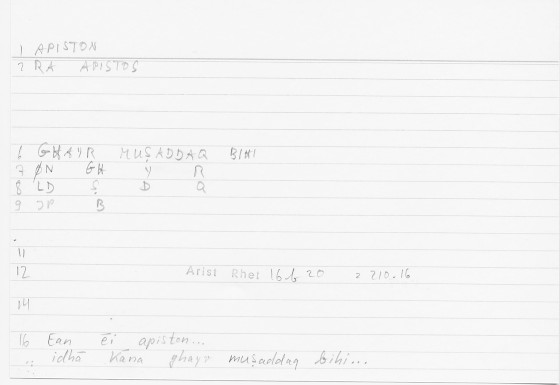 1 APISTON
2 RA APISTOS
6 GHAYR MUṢADDAQ BIHI
7 ØN GH Y R
8 LD Ṣ D Q
9 JP B
11
12 Arist Rhet 16 b 20 = 210.16
14
16 Ean ēi apiston...
idhā kāna ghayr muṣaddaq bihi...